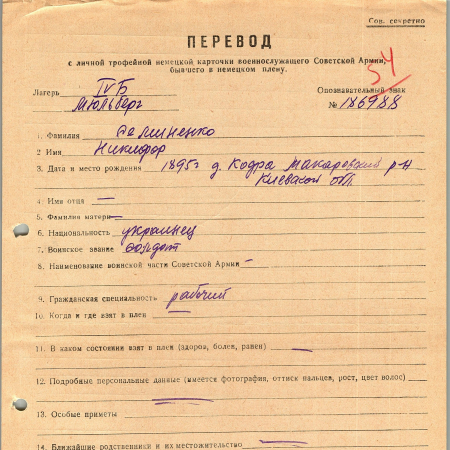 Сов. секретно
ПЕРЕВОД
с личной трофейной немецкой карточки военнослужащего Советской Армии,
бывшего в немецком плену.
54
Лагерь IV Б
Мюльберг
Опознавательный знак
№ 186988
1. Фамилия Делиненко
2 Имя Никифор
3. Дата и место рождения 1895г д. Кодра Макаровский р-н
Киевской обл.
4. Имя отца —
5. Фамилия матери —
6. Национальность украинец
7. Воинское звание солдат
8. Наименование воинской части Советской Армии —
9. Гражданская специальность рабочий
10. Когда и где взят в плен —
11. В каком состоянии взят в плен (здоров, болен, ранен) —
12. Подробные персональные данные (имеется фотография, оттиск пальцев, рост, цвет волос)
—
13. Особые приметы —
14. Ближайшие родственники и их местожительство —